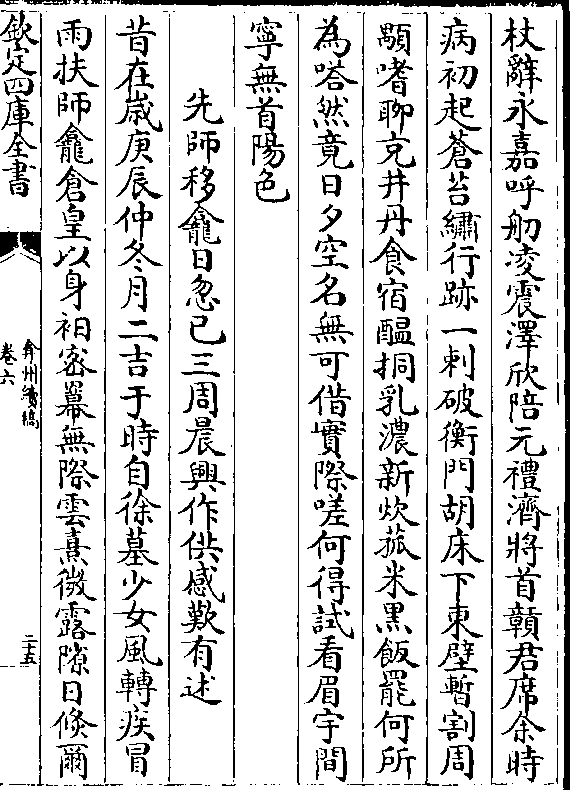 杖辭永嘉呼舠凌震澤欣陪元禮濟將首贑君席余時
病初起蒼苔繡行跡一刺破衡門胡床下東壁暫割周
顒嗜聊克井丹食宿醖挏乳濃新炊菰米黑飯罷何所
為嗒然竟日夕空名無可借實際嗟何得試看眉宇間
寧無首陽色
先師移龕日忽已三周晨興作供感歎有述
昔在歲庚辰仲冬月二吉于時自徐墓少女風轉疾冒
雨扶師龕倉皇以身袙密冪無際雲熹微露隙日倐爾
欽定四庫全書
弇州續稿
卷六
二十五